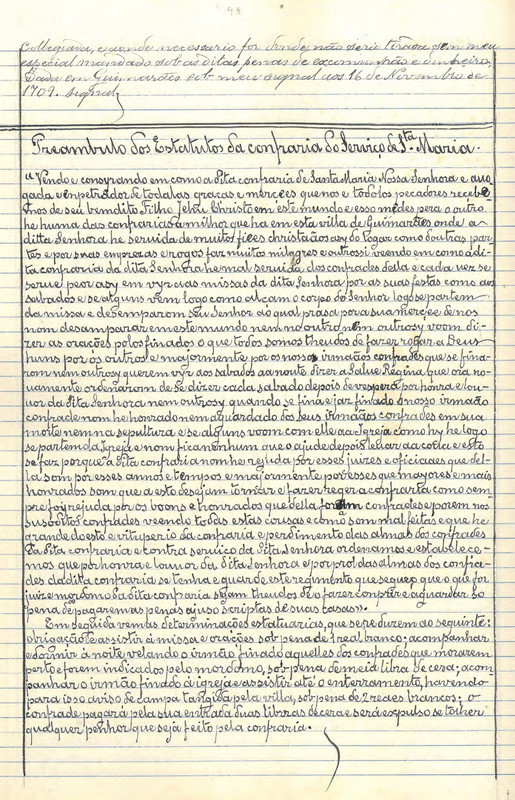 Collegiada, e aonde necessario for donde não será tirada sem meu
especial mandado sob as ditas penas de excomunhão e dinheiro.
Dada em Guimarães sob meu signal aos 16 de Novembro de
1709. Signal
Preambulo dos Estatutos da confraria do Serviço de Sta. Maria.
"Vendo e consyrando em como a dita confraria de Santa Maria Nossa Senhora e avo-
gada e enpetrador de todalas graças e mercees que nos e todolos pecadores recebe-
mos de seu bendito Filho Jehu Christo em este mundo e esso medes pera o outro
he huma das confrarias a milhor que ha em esta villa de Guimarães onde a
ditta Senhora he servida de muitos fiees christãos asy do logar como doutras par-
tes e por suas emprezas e rogos faz muitos milagres e outrossi veendo em como a di-
ta confraria da dita Senhora he mal servida dos confrades della e cada vez se
serve peor asy em vyr ás missas da dita Senhora por as suas festas como aos
sabados e se alguns vem logo como alçam o corpo do Senhor logo se partem
da missa e desemparom seu Senhor ao qual prasa por sua mercee de nos
nom desamparar em este mundo nem no outro nem outrosy voom di-
zer as orações polos finados o que todos somos theudos de fazer rogar a Deus
huns por os outros e majormente por os nossos irmãos confrades que se fina-
rom nem outrosy querem vyr aos sabados aa noute dizer a Salve Regina que ora no-
vamente ordenaram de se dizer cada sabado depois de vespera por honra e lou-
vor da dita Senhora nem outrosy quando se fina e jaz finado o nosso irmão
confrade nom he honrado nem aguardado dos seus irmãos confrades em sua
morte nem na sepultura e se alguns voom com elle aa Igreja como hy he logo
se partem da Igreja e nom fica nenhum que o ajude depois levar da cova e esto
se faz porque a dita confraria nom he rejuda por esses juizes e oficiaaes que del-
la som por esses anos e tempos e majormente por esses que mayores e mais
honrados som que a esto desejam tornar e fazer reger a confraria como sem-
pre foi rejuda por os boons e honrados que della foram confrades e porem nos
susoditos confrades veendo todas estas cousas e como som mal feitas e que he
grande doesto e vituperio da confraria e perdimento das almas dos confrades
da dita confraria e contra serviço da dita Senhora ordenamos e estabelece-
mos que por honra e louvor da dita Senhora e por prol das almas dos confra-
des da dita confraria se tenha e guarde este regimento que segue o que for
juiz e mordomo da dita confraria sejam theudos de o fazer conprir e aguardar so
pena de pagarem as penas ajuso scriptas de suas casas".
Em seguida vem as determinações estatuarias, que se reduzem ao seguinte:
obrigação de assistir á missa e orações sob pena de 1 real branco; acompanhar
e dormir á noite velando o irmão finado aquelles dos confrades que morarem
perto e forem indicados pelo mordomo, sob pena de meia libra de cera; acom-
panhar o irmão finado á igreja e assistir até o enterramento, havendo
para isso aviso de campa tangida pela villa, sob pena de 2 reaes brancos; o
confrade pagará pela sua entrada duas libras de cera e será expulso se tolher
qualquer penhor que seja feito pela confraria.